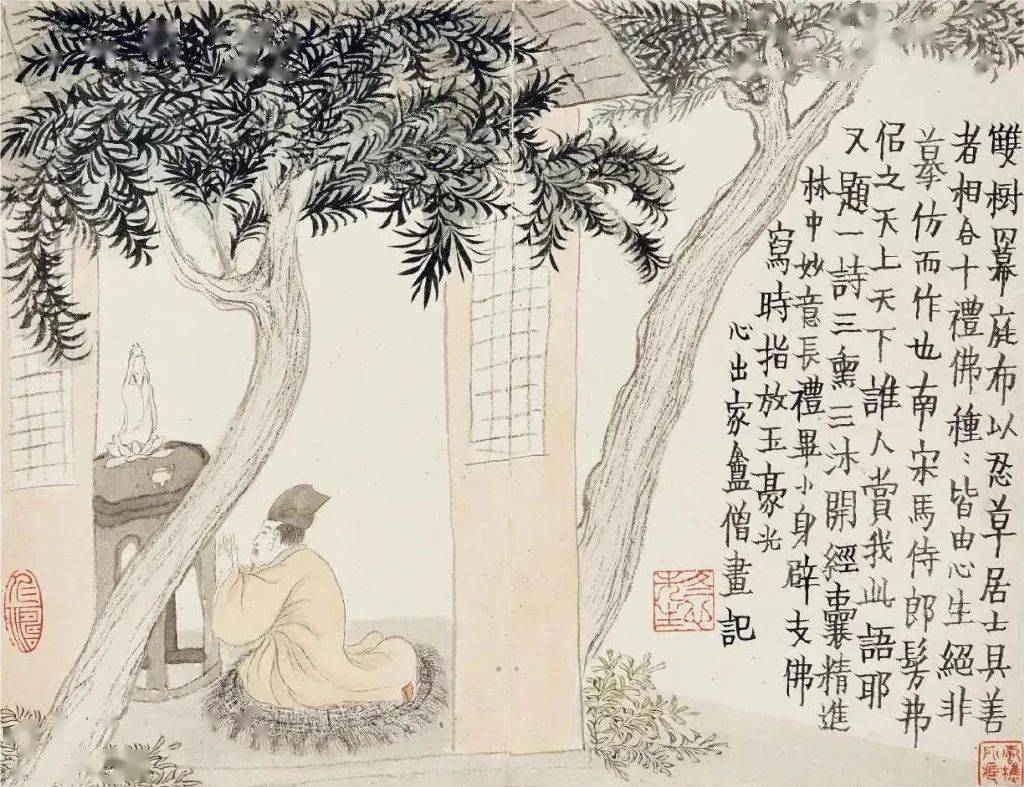 雙樹罩幕庭布以忍草居士具善
者相合十禮佛種〻皆由心生絕非
摹仿而作也南宋馬侍郎髣弗
侶之天上天下誰人賞我此語耶
又題一詩三熏三沐開經囊精進
林中妙意長禮畢小身辟支佛
寫時指放玉豪光
心出家盦僧畫記